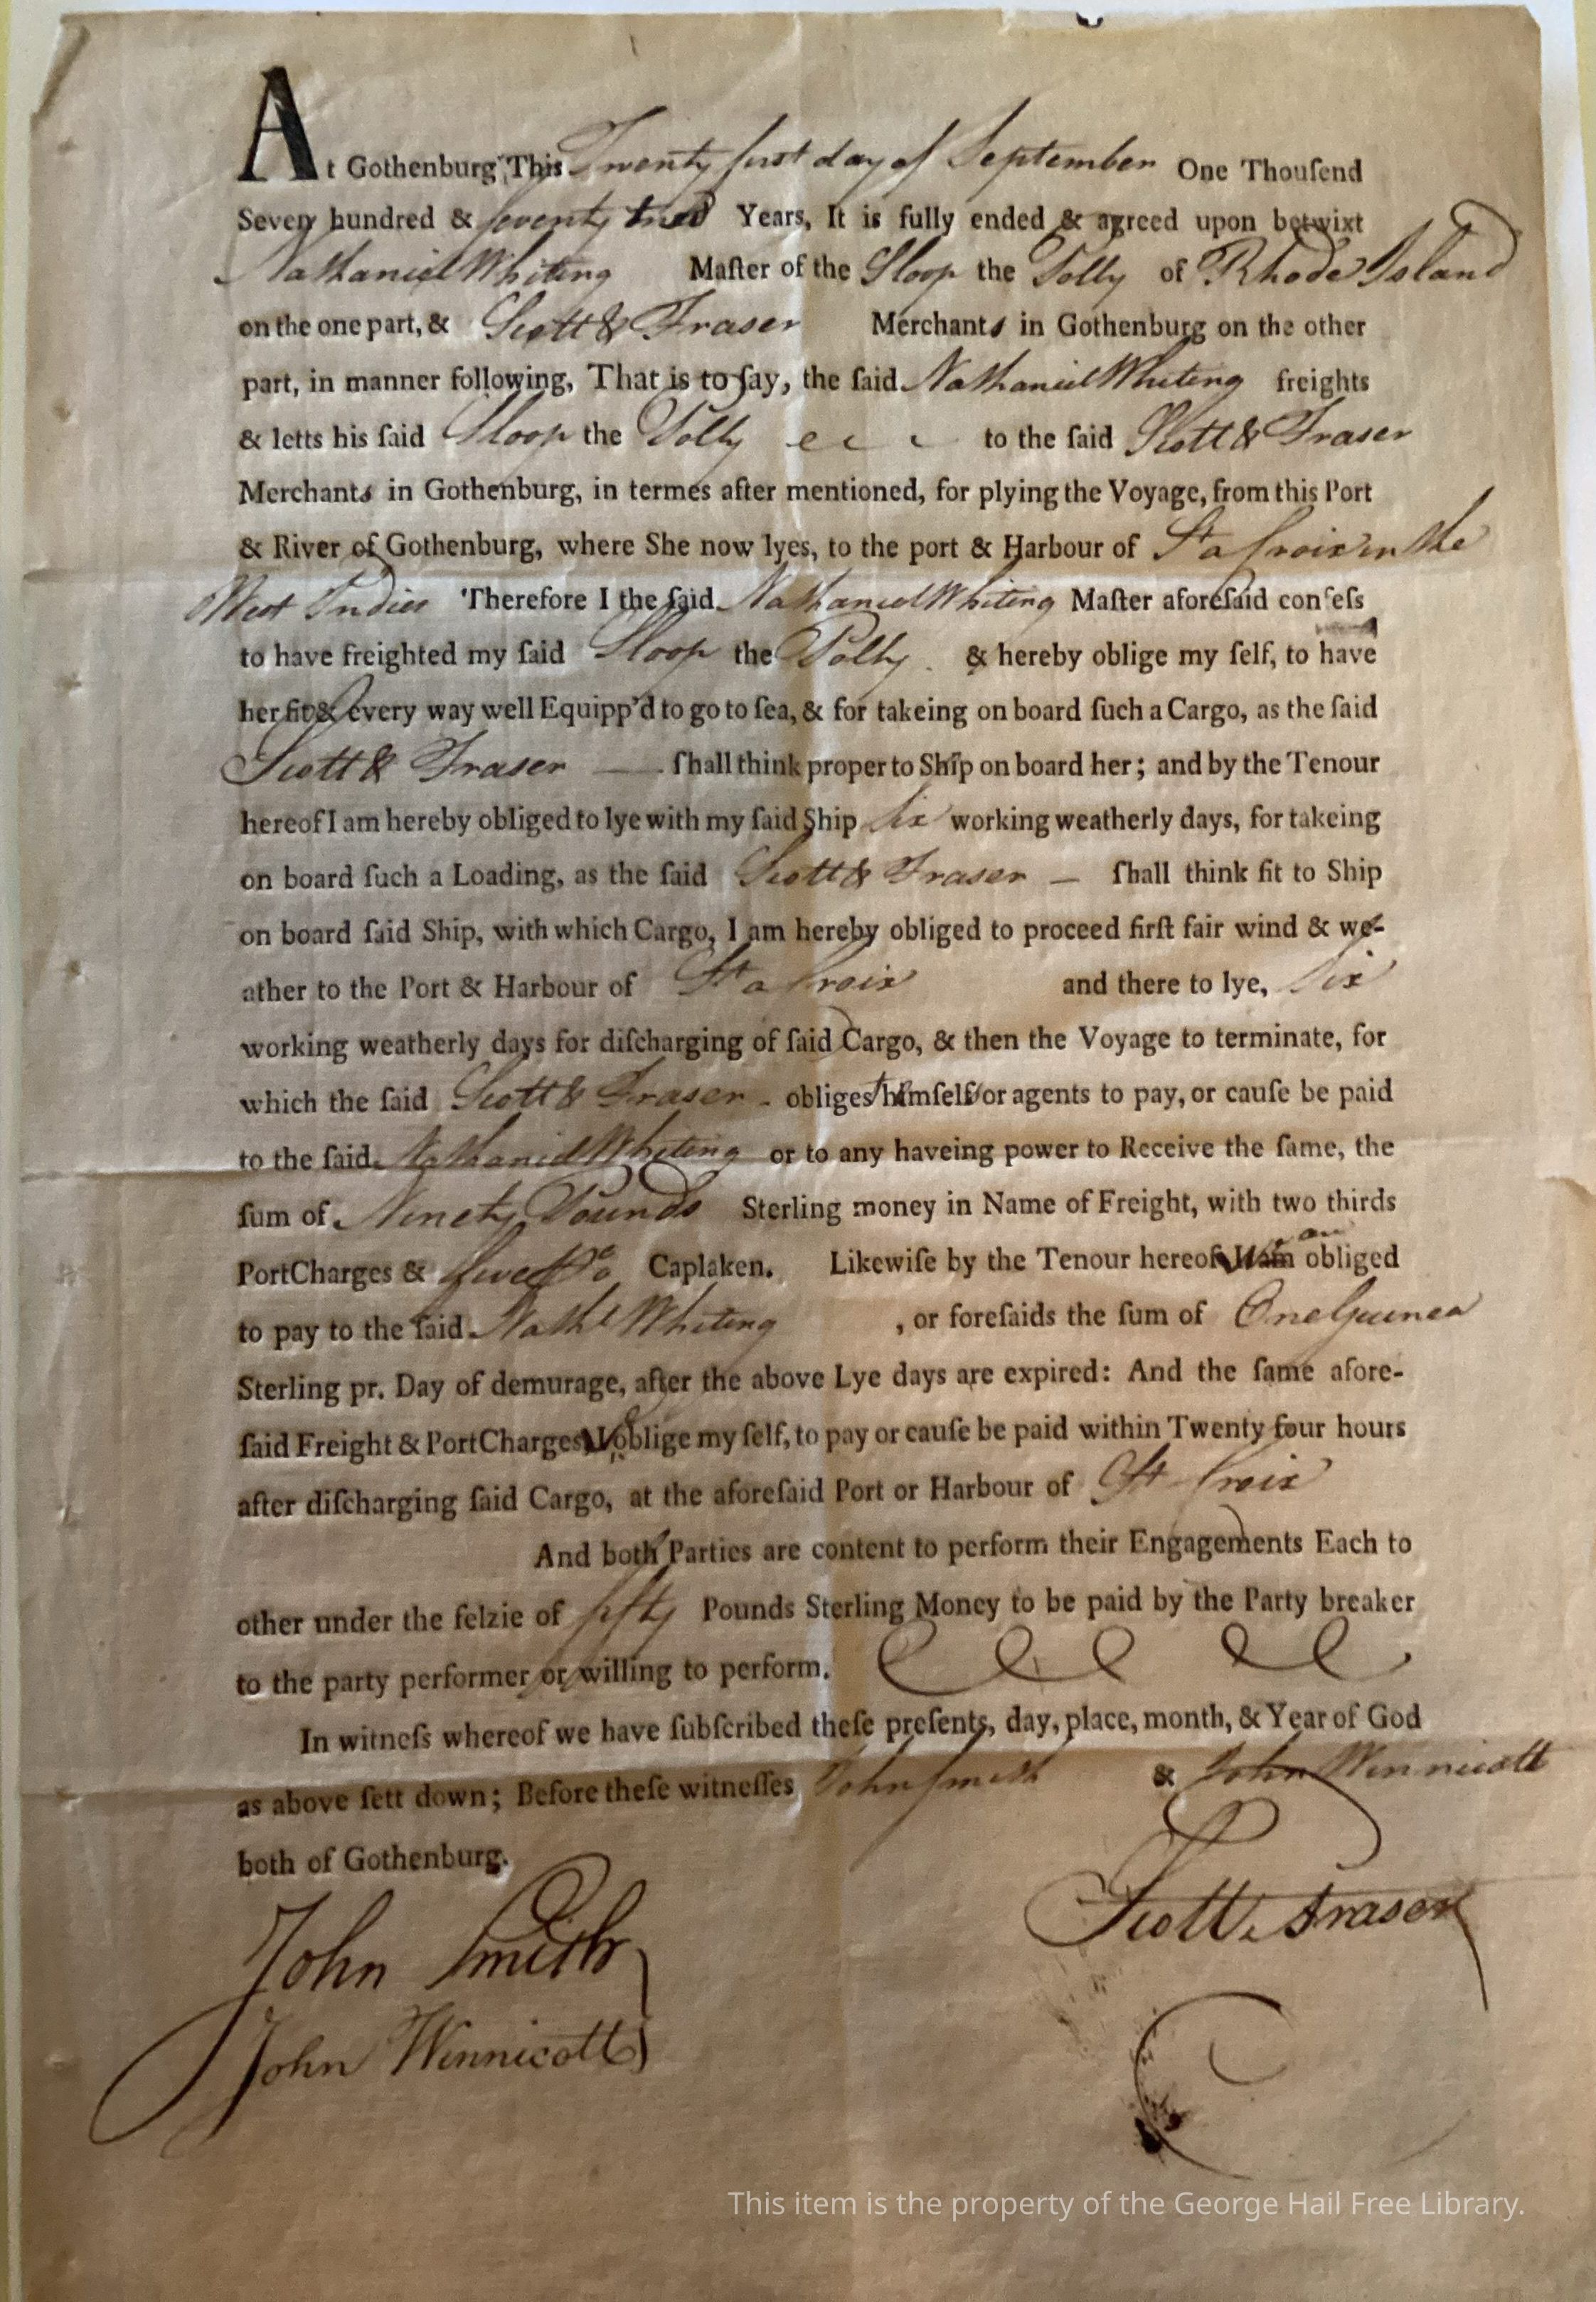 At Gothenburg This Twenty first day of September One Thouſend
Seven hundred & ſeventy Years, It is fully ended & agreed upon betwixt
Nathaniel Whiting Maſter of the Sloop the Polly of Rhode Island
on the one part, & Scott & Fraser Merchants in Gothenburg on the other
part, in manner following, That is to ſay, the ſaid Nathaniel Whiting freights
& letts his ſaid Sloop the Polly to the ſaid Scott & Fraser
Merchants in Gothenburg, in termes after mentioned, for plying the Voyage, from this Port
& River of Gothenburg, where She now lyes, to the port & Harbour of Sta Croix in the
West Indies Therefore I the ſaid Nathaniel Whiting Maſter aforeſaid confeſs
to have freighted my ſaid Sloop the Polly & hereby oblige my ſelf, to have
her fit & every way well Equipp'd to go to ſea, & for takeing on board ſuch a Cargo, as the ſaid
Scott & Fraser — ſhall think proper to Ship on board her; and by the Tenour
hereof I am hereby obliged to lye with my ſaid Ship six working weatherly days, for takeing
on board ſuch a Loading, as the ſaid Scott & Fraser — ſhall think fit to Ship
on board ſaid Ship, with which Cargo, I am hereby obliged to proceed firſt fair wind & we-
ather to the Port & Harbour of Sta Croix and there to lye, Six
working weatherly days for diſcharging of ſaid Cargo, & then the Voyage to terminate, for
which the ſaid Scott & Fraser - obliges himſelf or agents to pay, or cauſe be paid
to the ſaid Nathaniel Whiting or to any haveing power to Receive the ſame, the
ſum of Ninety Pounds Sterling money in Name of Freight, with two thirds
PortCharges & five Caplaken. Likewiſe by the Tenour hereof obliged
to pay to the ſaid Nathl Whiting , or foreſaids the ſum of One Guinea
Sterling pr. Day of demurage, after the above Lye days are expired: And the ſame afore-
ſaid Freight & PortCharges oblige my ſelf, to pay or cauſe be paid within Twenty four hours
after diſcharging ſaid Cargo, at the aforeſaid Port or Harbour of St Croix
And both Parties are content to perform their Engagements Each to
other under the felzie of fifty Pounds Sterling Money to be paid by the Party breaker
to the party performer or willing to perform.
In witneſs whereof we have ſubſcribed theſe preſents, day, place, month, & Year of God
as above ſett down; Before theſe witneſſes John Smith & John Winnicott
both of Gothenburg.
John Smith
Scott & Fraser
John Winnicott
This item is the property of the George Hail Free Library.